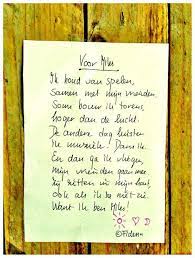 Voor Alles
Ik houd van spelen,
Samen met mijn vrienden.
Soms bouw ik torens,
hoger dan de lucht.
De andere dag luister
ik muziek! Dans ik
En dan ga ik vliegen,
mijn vrienden gaan mee
zij zitten in mijn hart,
ook als ik ze niet zie.
Want ik ben Alles!